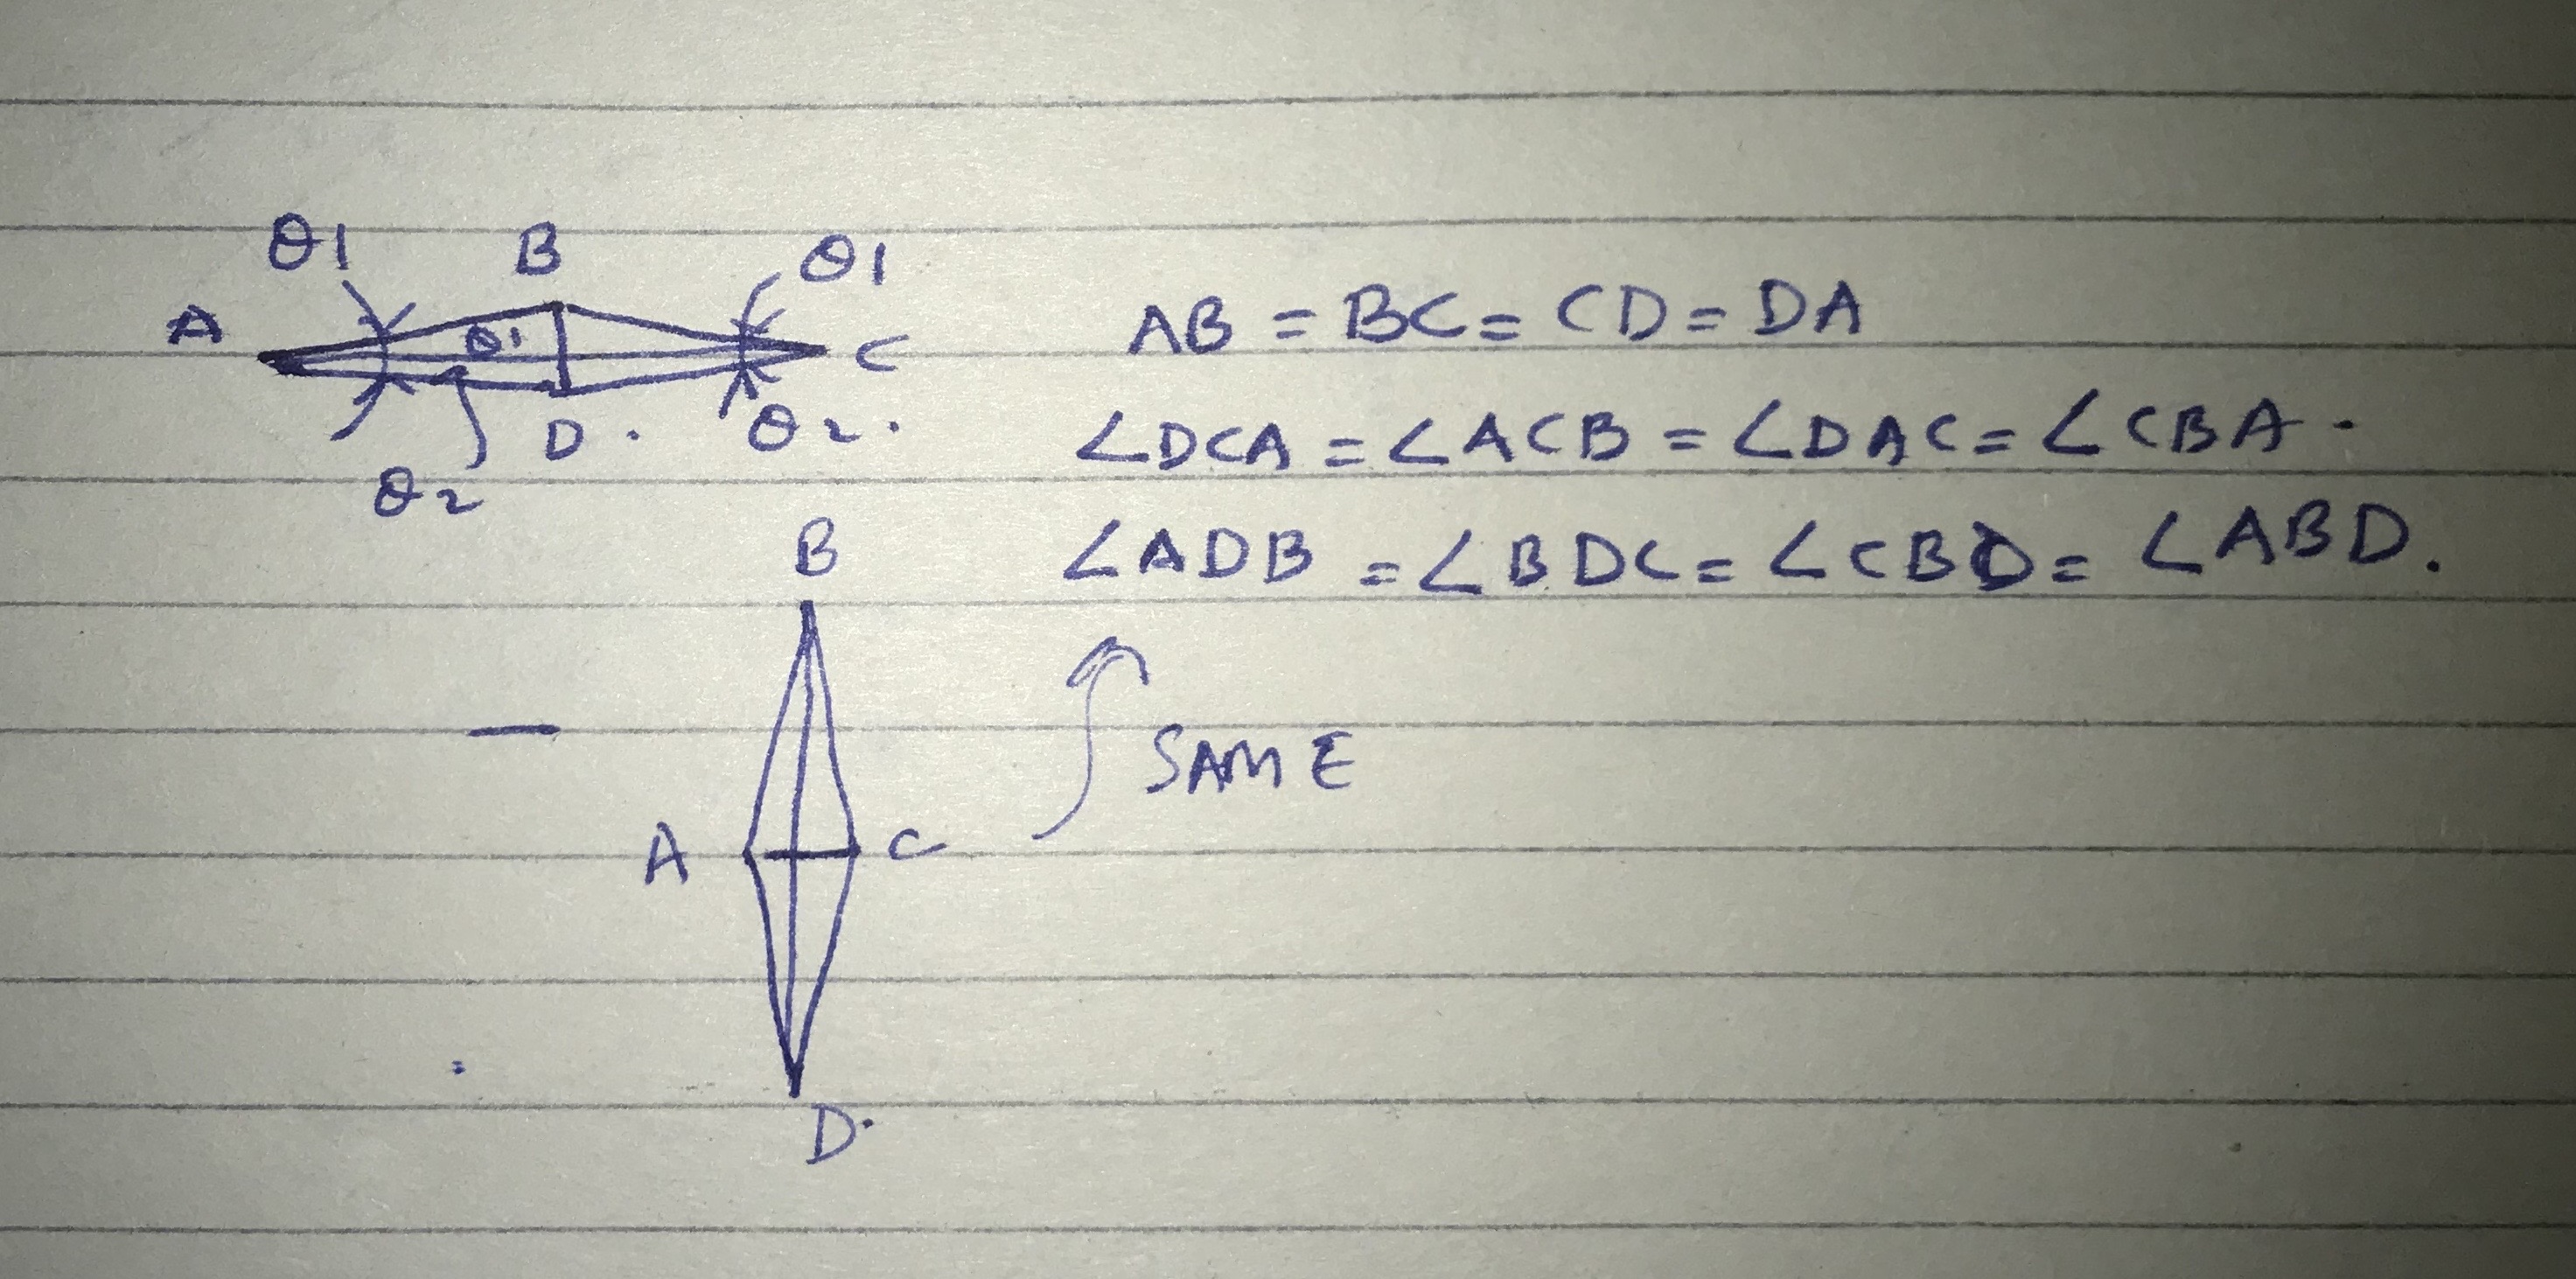 θ1 B θ1
A θ1 C
D. θ2.
θ2
AB = BC = CD = DA
∠DCA = ∠ACB = ∠DAC = ∠CBA.
∠ADB = ∠BDC = ∠CBD = ∠ABD.
B
SAME
A C
D.